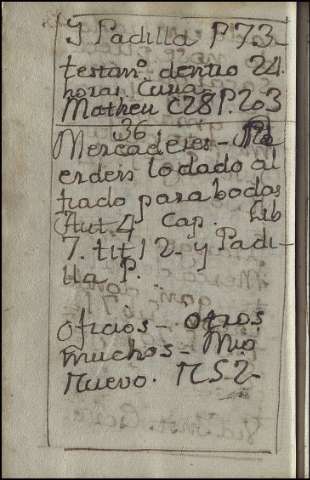 Y Padilla P. 73
testamº. dentro 24.
horas Curias
Matheu C28 P. 203
36
Mercaderes - Pi
erden lo dado al
fiado para bodas
Aut. 4 Cap. Lib
7. tit 12 y Padi-
lla P.
oficios - otros
muchos - Mio
Nuevo. N52